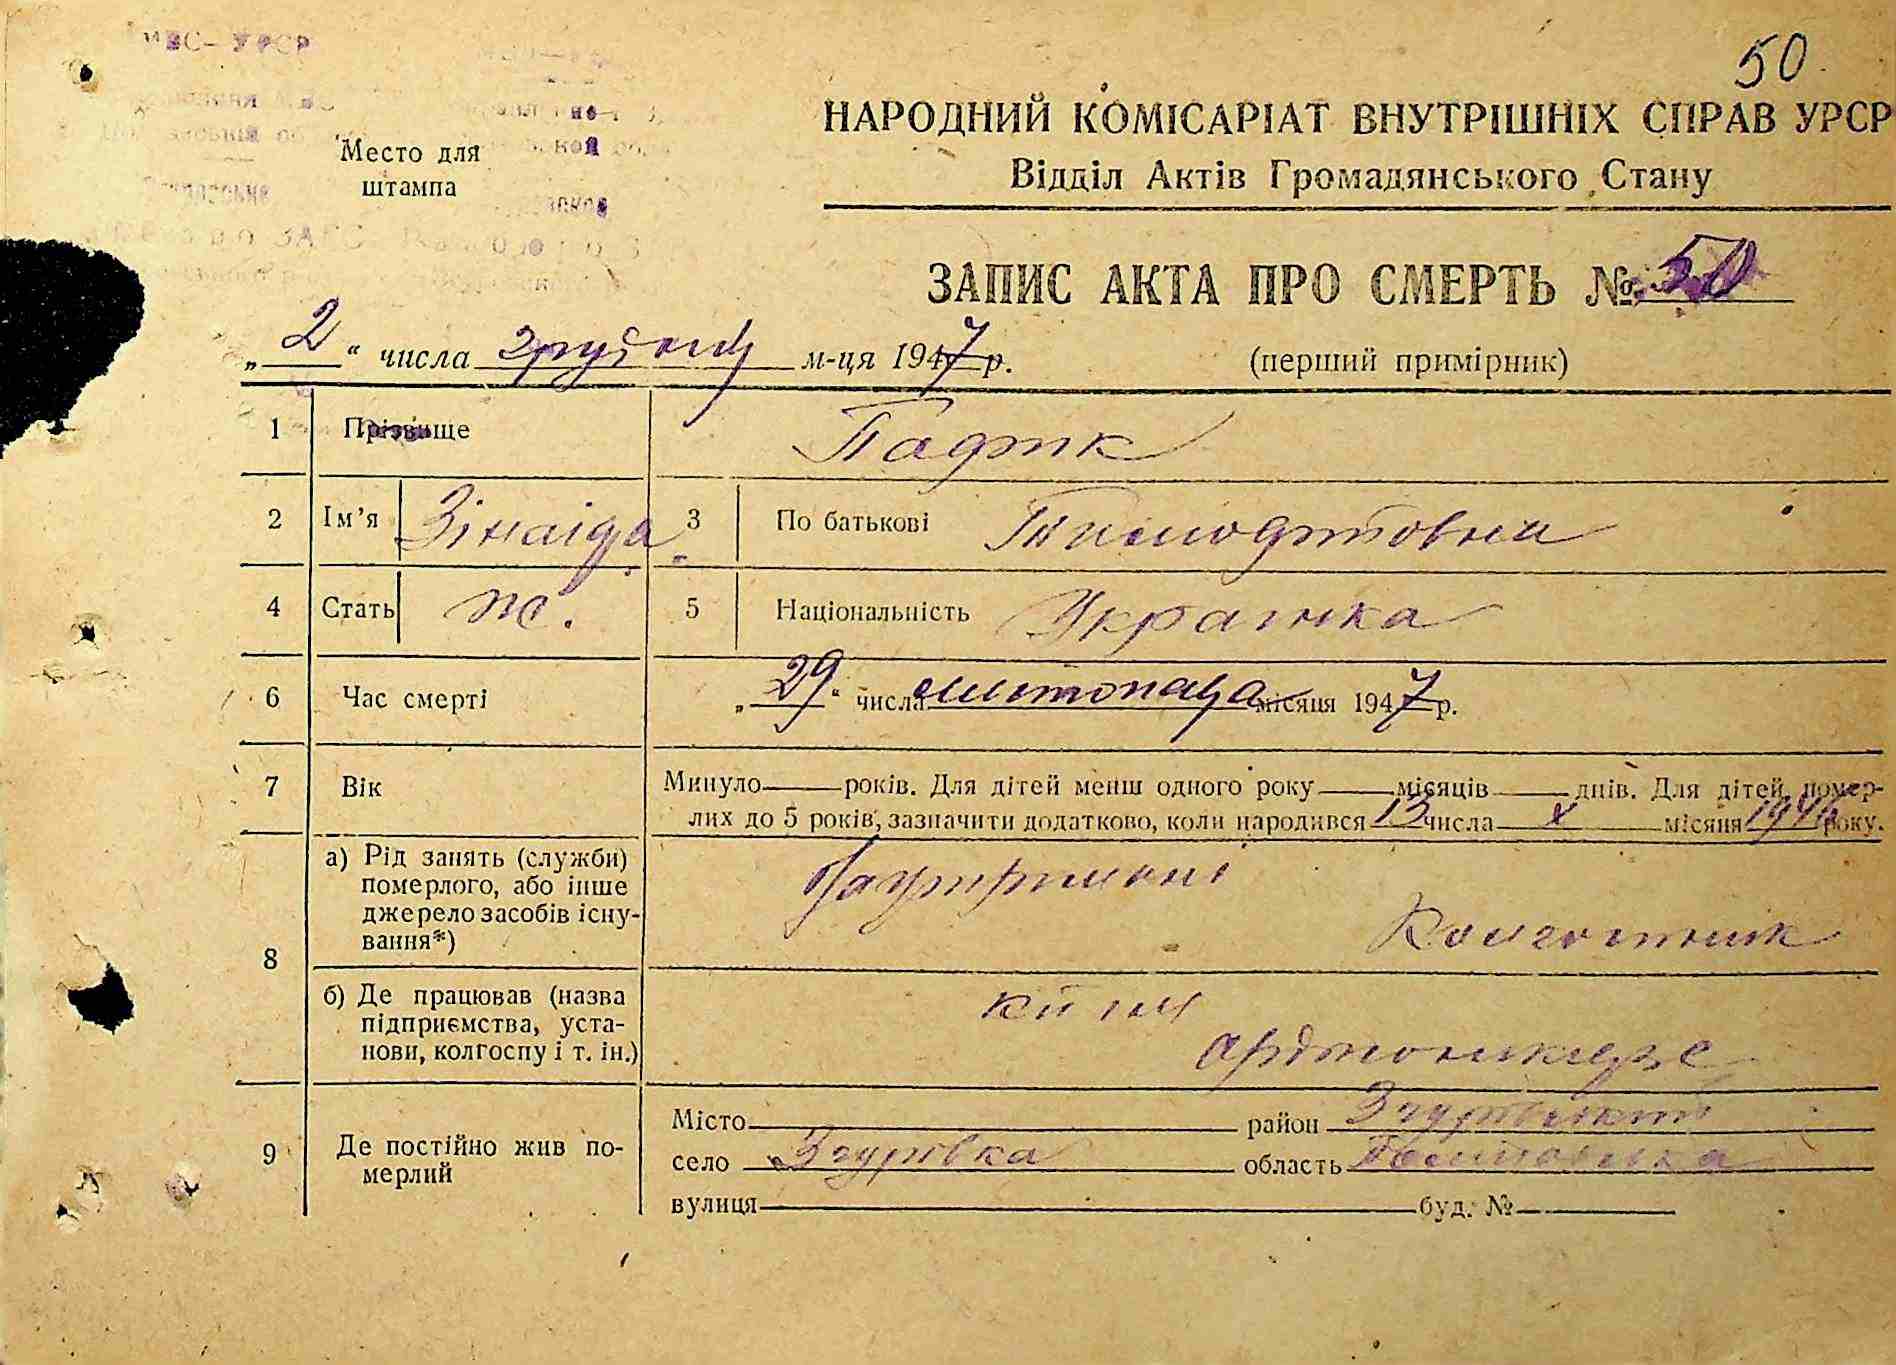 50
МВС–УРСР
НАРОДНИЙ КОМІСАРІАТ ВНУТРІШНІХ СПРАВ УРСР
Відділ Актів Громадянського Стану
Место для
штампа
ЗАПИС АКТА ПРО СМЕРТЬ № 50
„ 2 “ числа грудня м-ця 1947 р. (перший примірник)
1 Прізвище
2 Ім'я Зінаіда 3 По батькові
4 Стать ж. 5 Національність Украінка
6 Час смерті „ 29 “ числа листопада місяця 1947 р.
7 Вік Минуло років. Для дітей менш одного року місяців днів. Для дітей, помер-
лих до 5 років, зазначити додатково, коли народився 13 числа X місяця 1946 року.
8 а) Рід занять (служби)
померлого, або інше
джерело засобів існу-
вання*)
Колгоспник
б) Де працював (назва
підприємства, уста-
нови, колгоспу і т. ін.)
9 Де постійно жив по-
мерлий
Місто район
село Згурівка область Полтавська
вулиця буд. №